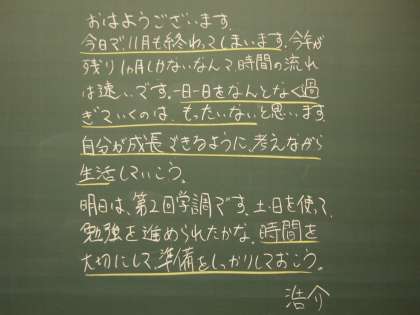 おはようございます.
今日で、11月も終わってしまいます.今年が
残り1ヵ月しかないなんて、時間の流れ
は速いです。一日一日をなんとなく過
ぎていくのは、もったいないと思います.
自分が成長できるように、考えながら
生活していこう。
明日は、第2回学調です.土日を使って、
勉強を進められたかな。時間を
大切にして、準備をしっかりしておこう。
浩介